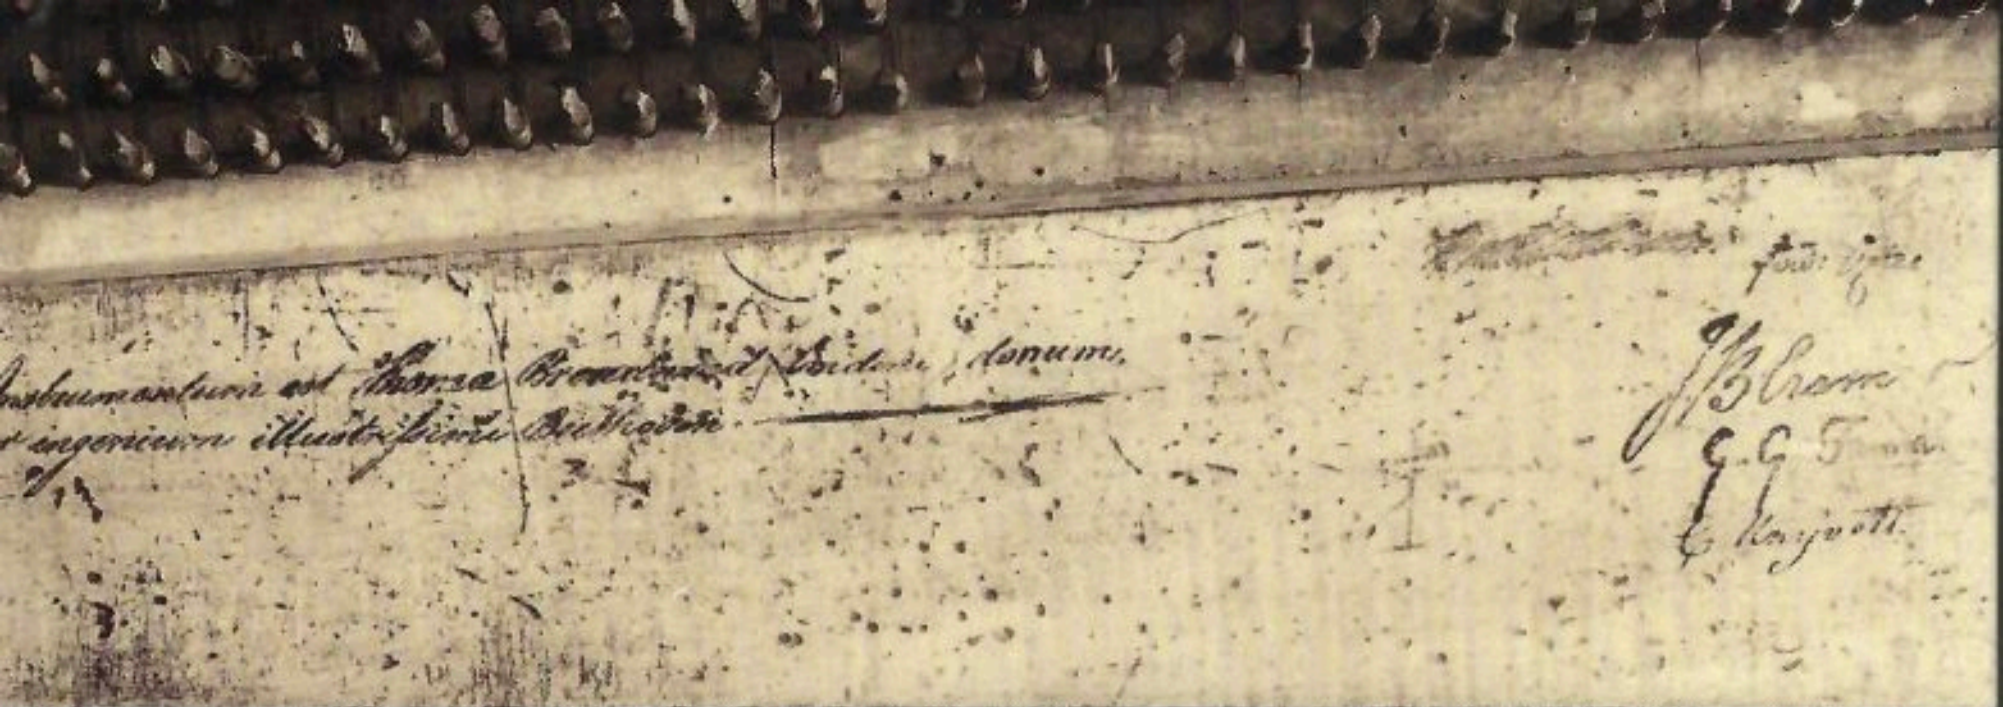 Instrumentum est Thomæ Broadwood, Londini, donum,
ingenium illustrissimi Beethoven.
J B Cram
G. G. F
C Knyvett.